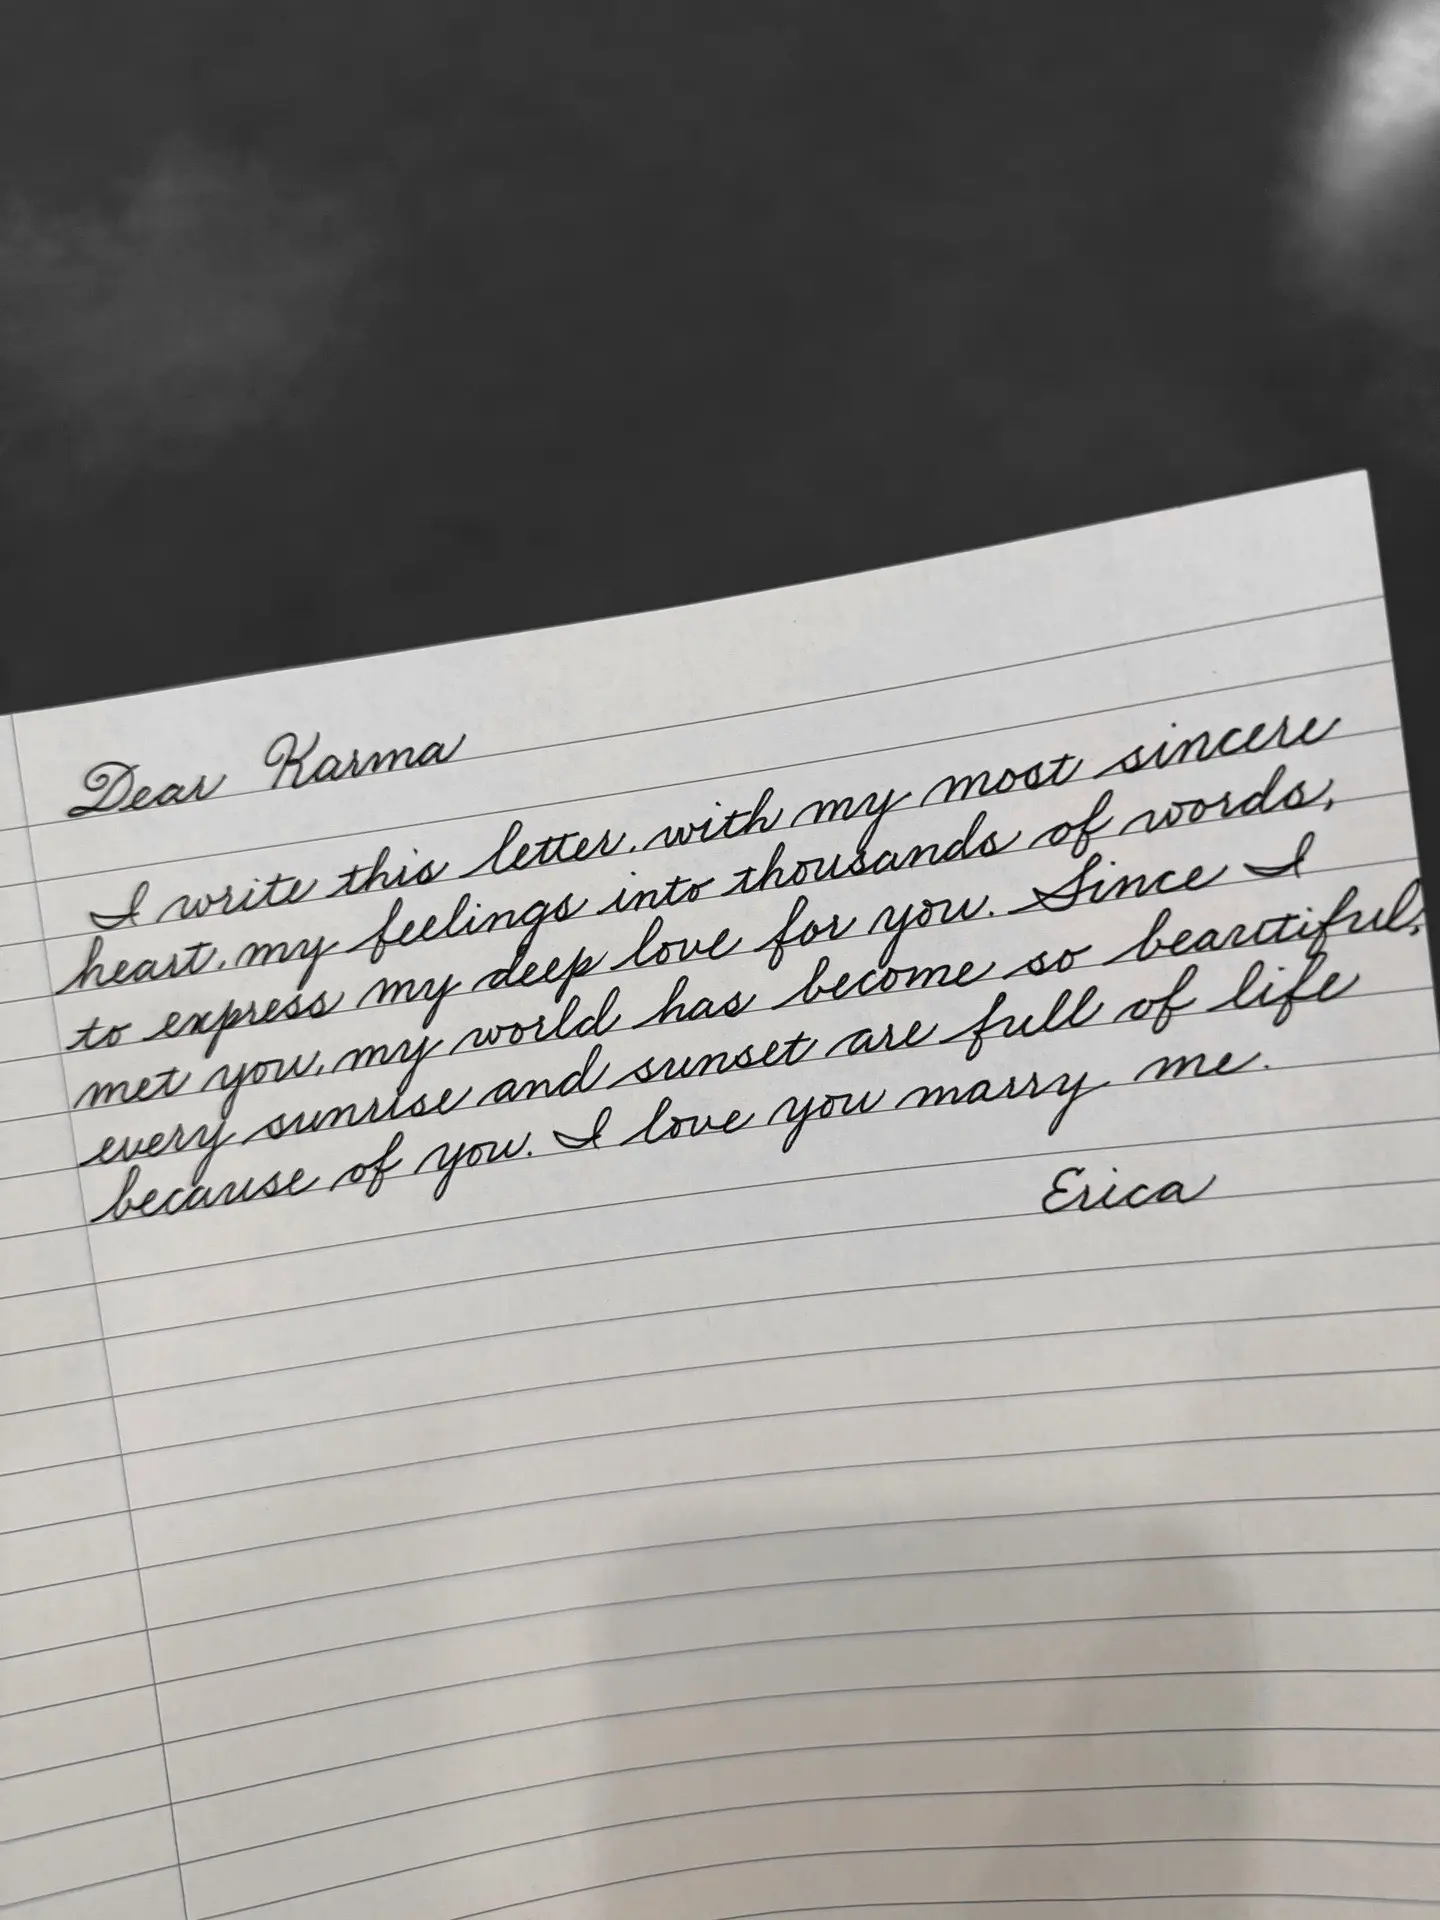 Dear Karma
I write this letter, with my most sincere
heart, my feelings into thousands of words,
to express my deep love for you. Since I
met you, my world has become so beautiful,
every sunrise and sunset are full of life
because of you. I love you marry me.
Erica